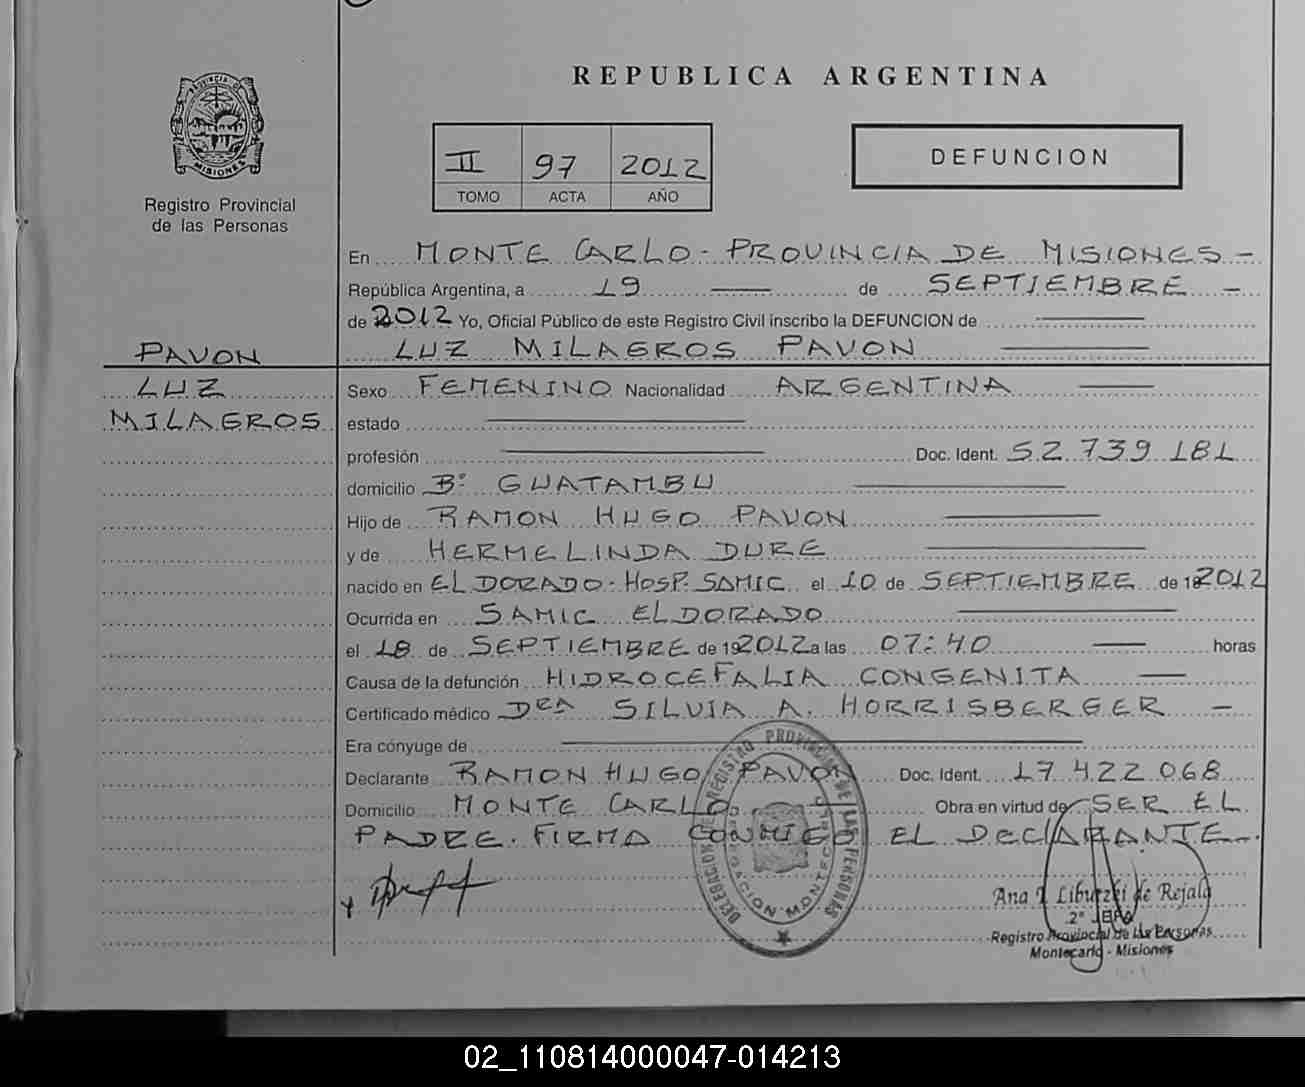 REPUBLICA ARGENTINA
PROVINCIA DE
MISIONES
Registro Provincial
de las Personas
II 97 2012
TOMO ACTA AÑO
DEFUNCION
En MONTE CARLO - PROVINCIA DE MISIONES -
República Argentina, a 19 de SEPTIEMBRE -
de 2012 Yo, Oficial Público de este Registro Civil inscribo la DEFUNCION de
PAVON
LUZ MILAGROS PAVON
LUZ
MILAGROS
Sexo FEMENINO Nacionalidad ARGENTINA
estado
profesión Doc. Ident. 52 739 181
domicilio B° GUATAMBU
Hijo de RAMON HUGO PAVON
y de HERMELINDA DURE
nacido en ELDORADO - HOSP. SAMIC el 10 de SEPTIEMBRE de 2012
Ocurrida en SAMIC ELDORADO
el 18 de SEPTIEMBRE de 192012 a las 07:40 horas
Causa de la defunción HIDROCEFALIA CONGENITA
Certificado médico Dra SILVIA A. HORRISBERGER -
Era cónyuge de
Declarante RAMON HUGO PAVON Doc. Ident. 17 422 068
Domicilio MONTE CARLO Obra en virtud de SER EL
PADRE. FIRMA CONMIGO EL DEClARANTE.
DELEGACION DE REGISTRO PROVINCIAL DE LAS PERSONAS
Ana I. de Rejala
2° JEFA
Registro Provincial de las Personas
Montecarlo - Misiones
02_110814000047-014213